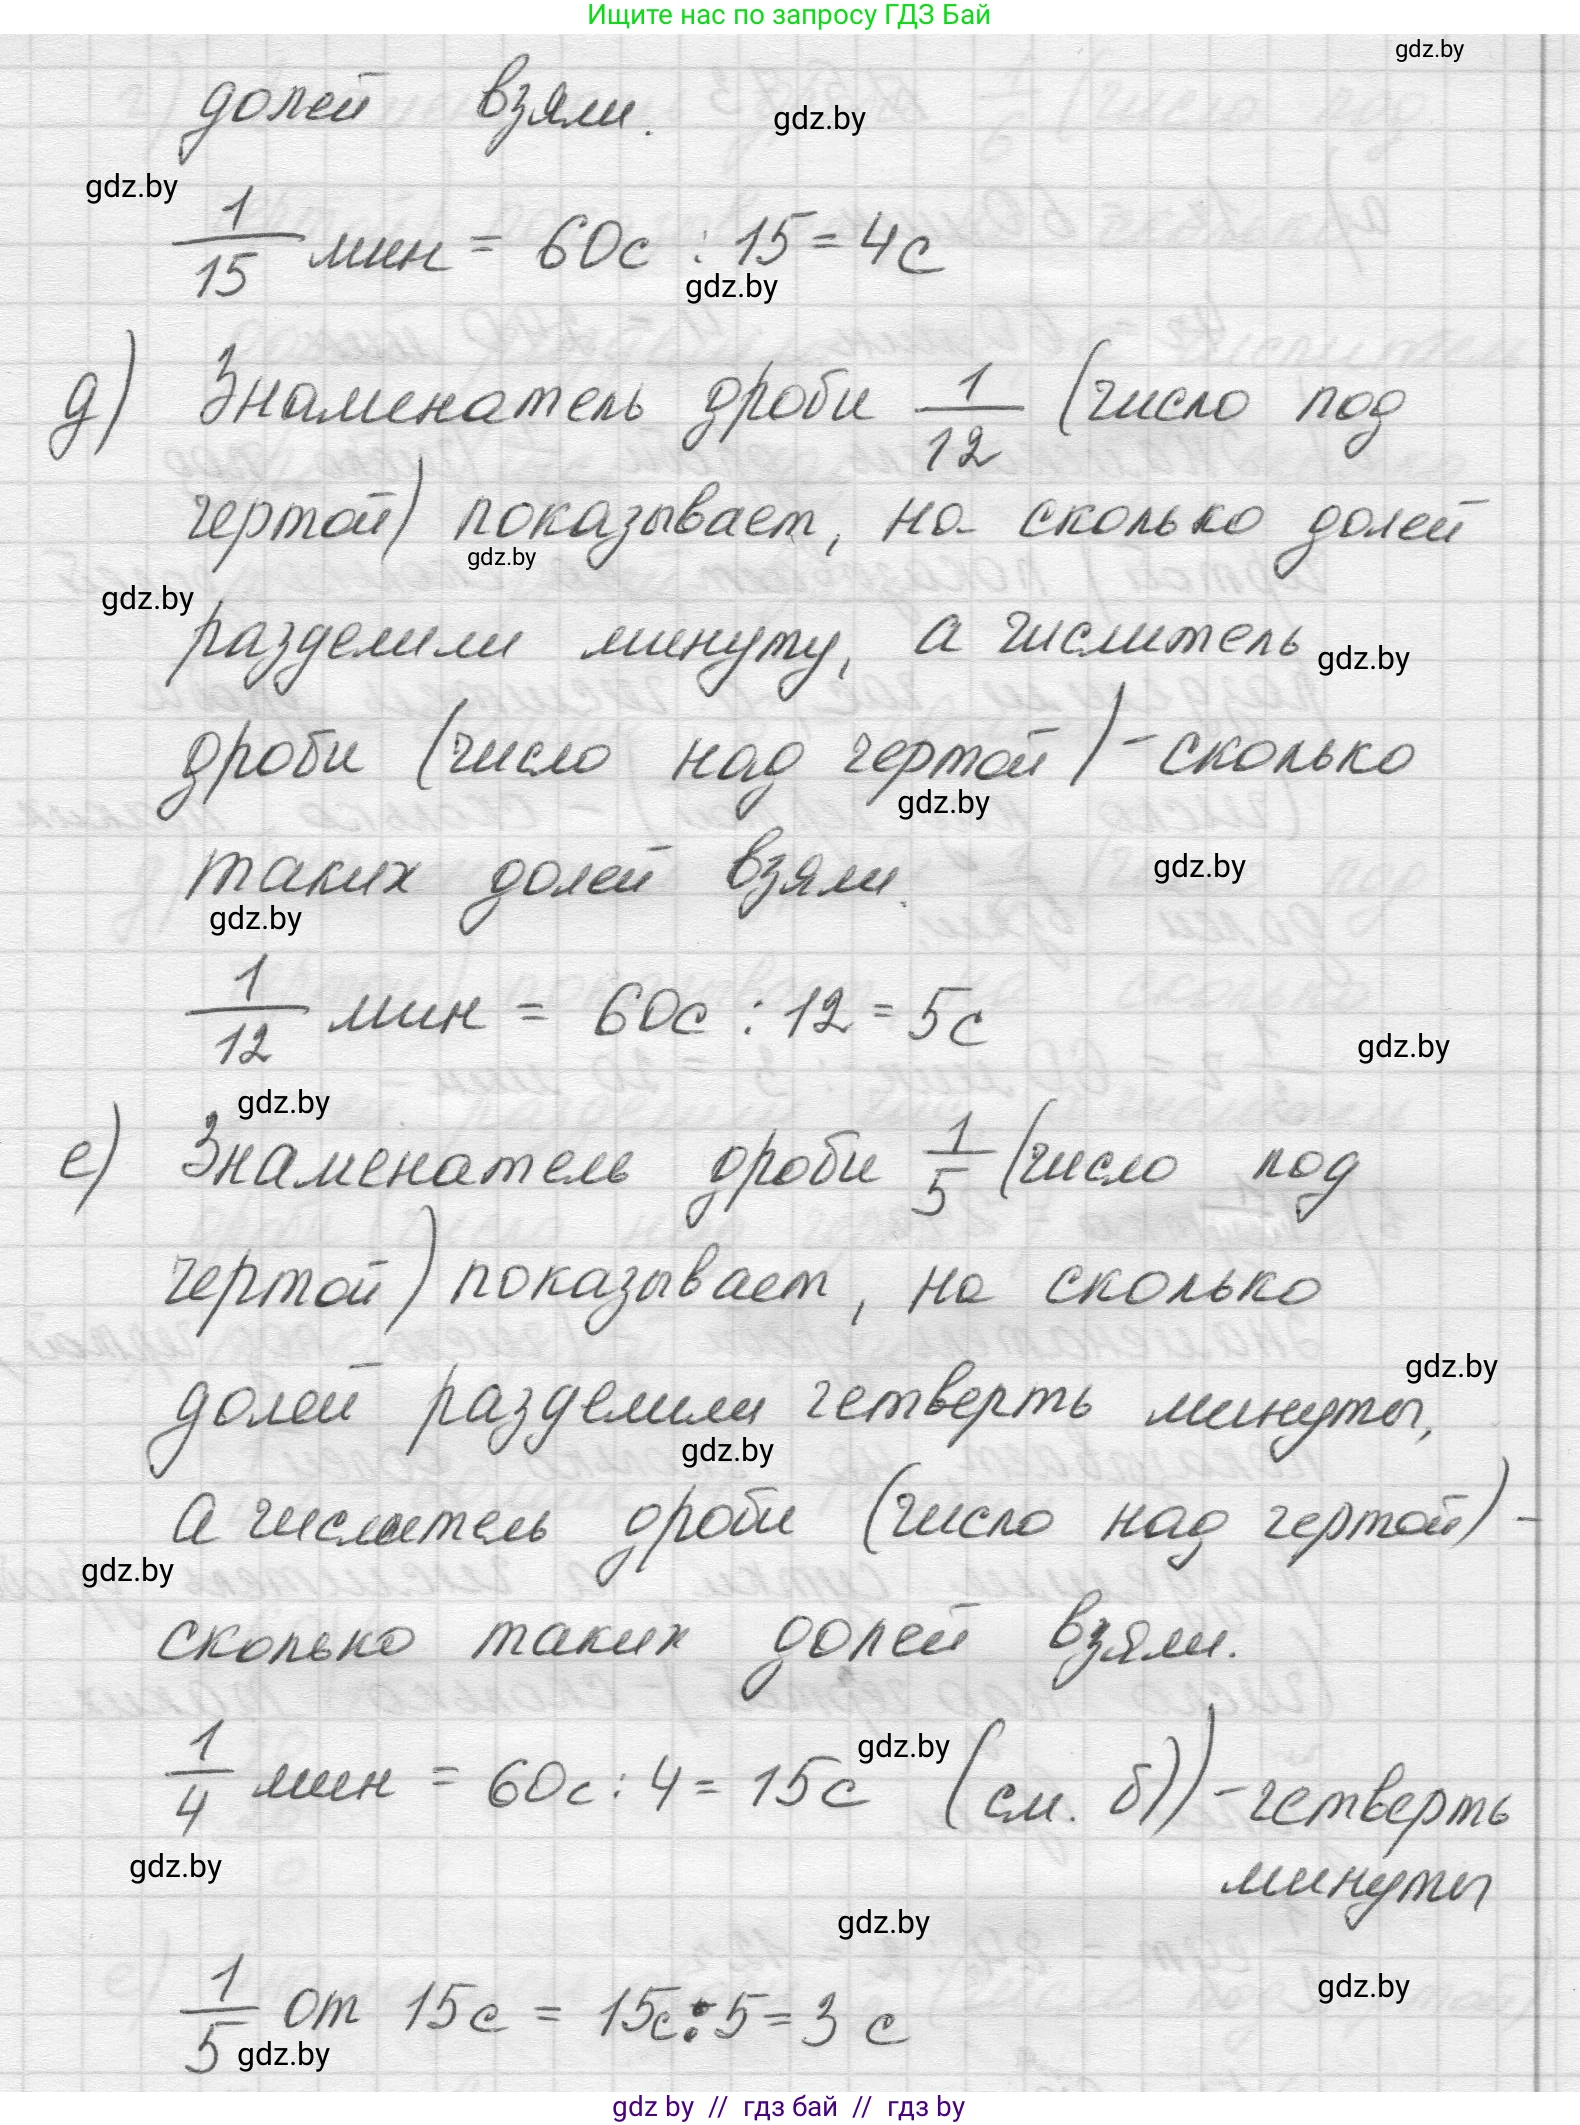 Ищите нас по запросу ГДЗ Бай
gdz.by
долей взяли.
gdz.by
gdz.by
1/15 мин = 60с : 15 = 4с
gdz.by
д) Знаменатель дроби 1/12 (число под
чертой) показывает, на сколько долей
gdz.by
gdz.by
разделили минуту, а числитель
gdz.by
дроби (число над чертой) - сколько
gdz.by
таких долей взяли.
gdz.by
gdz.by
1/12 мин = 60с : 12 = 5с
gdz.by
gdz.by
е) Знаменатель дроби 1/5 (число под
чертой) показывает, на сколько
gdz.by
долей разделили четверть минуты,
gdz.by
а числитель дроби (число над чертой) -
gdz.by
сколько таких долей взяли.
1/4 мин = 60с : 4 = 15с (см. б)) - четверть
gdz.by
минуты
gdz.by
gdz.by
gdz.by
1/5 от 15с = 15с : 5 = 3 с
gdz.by
gdz by // гдз бай // гдз by